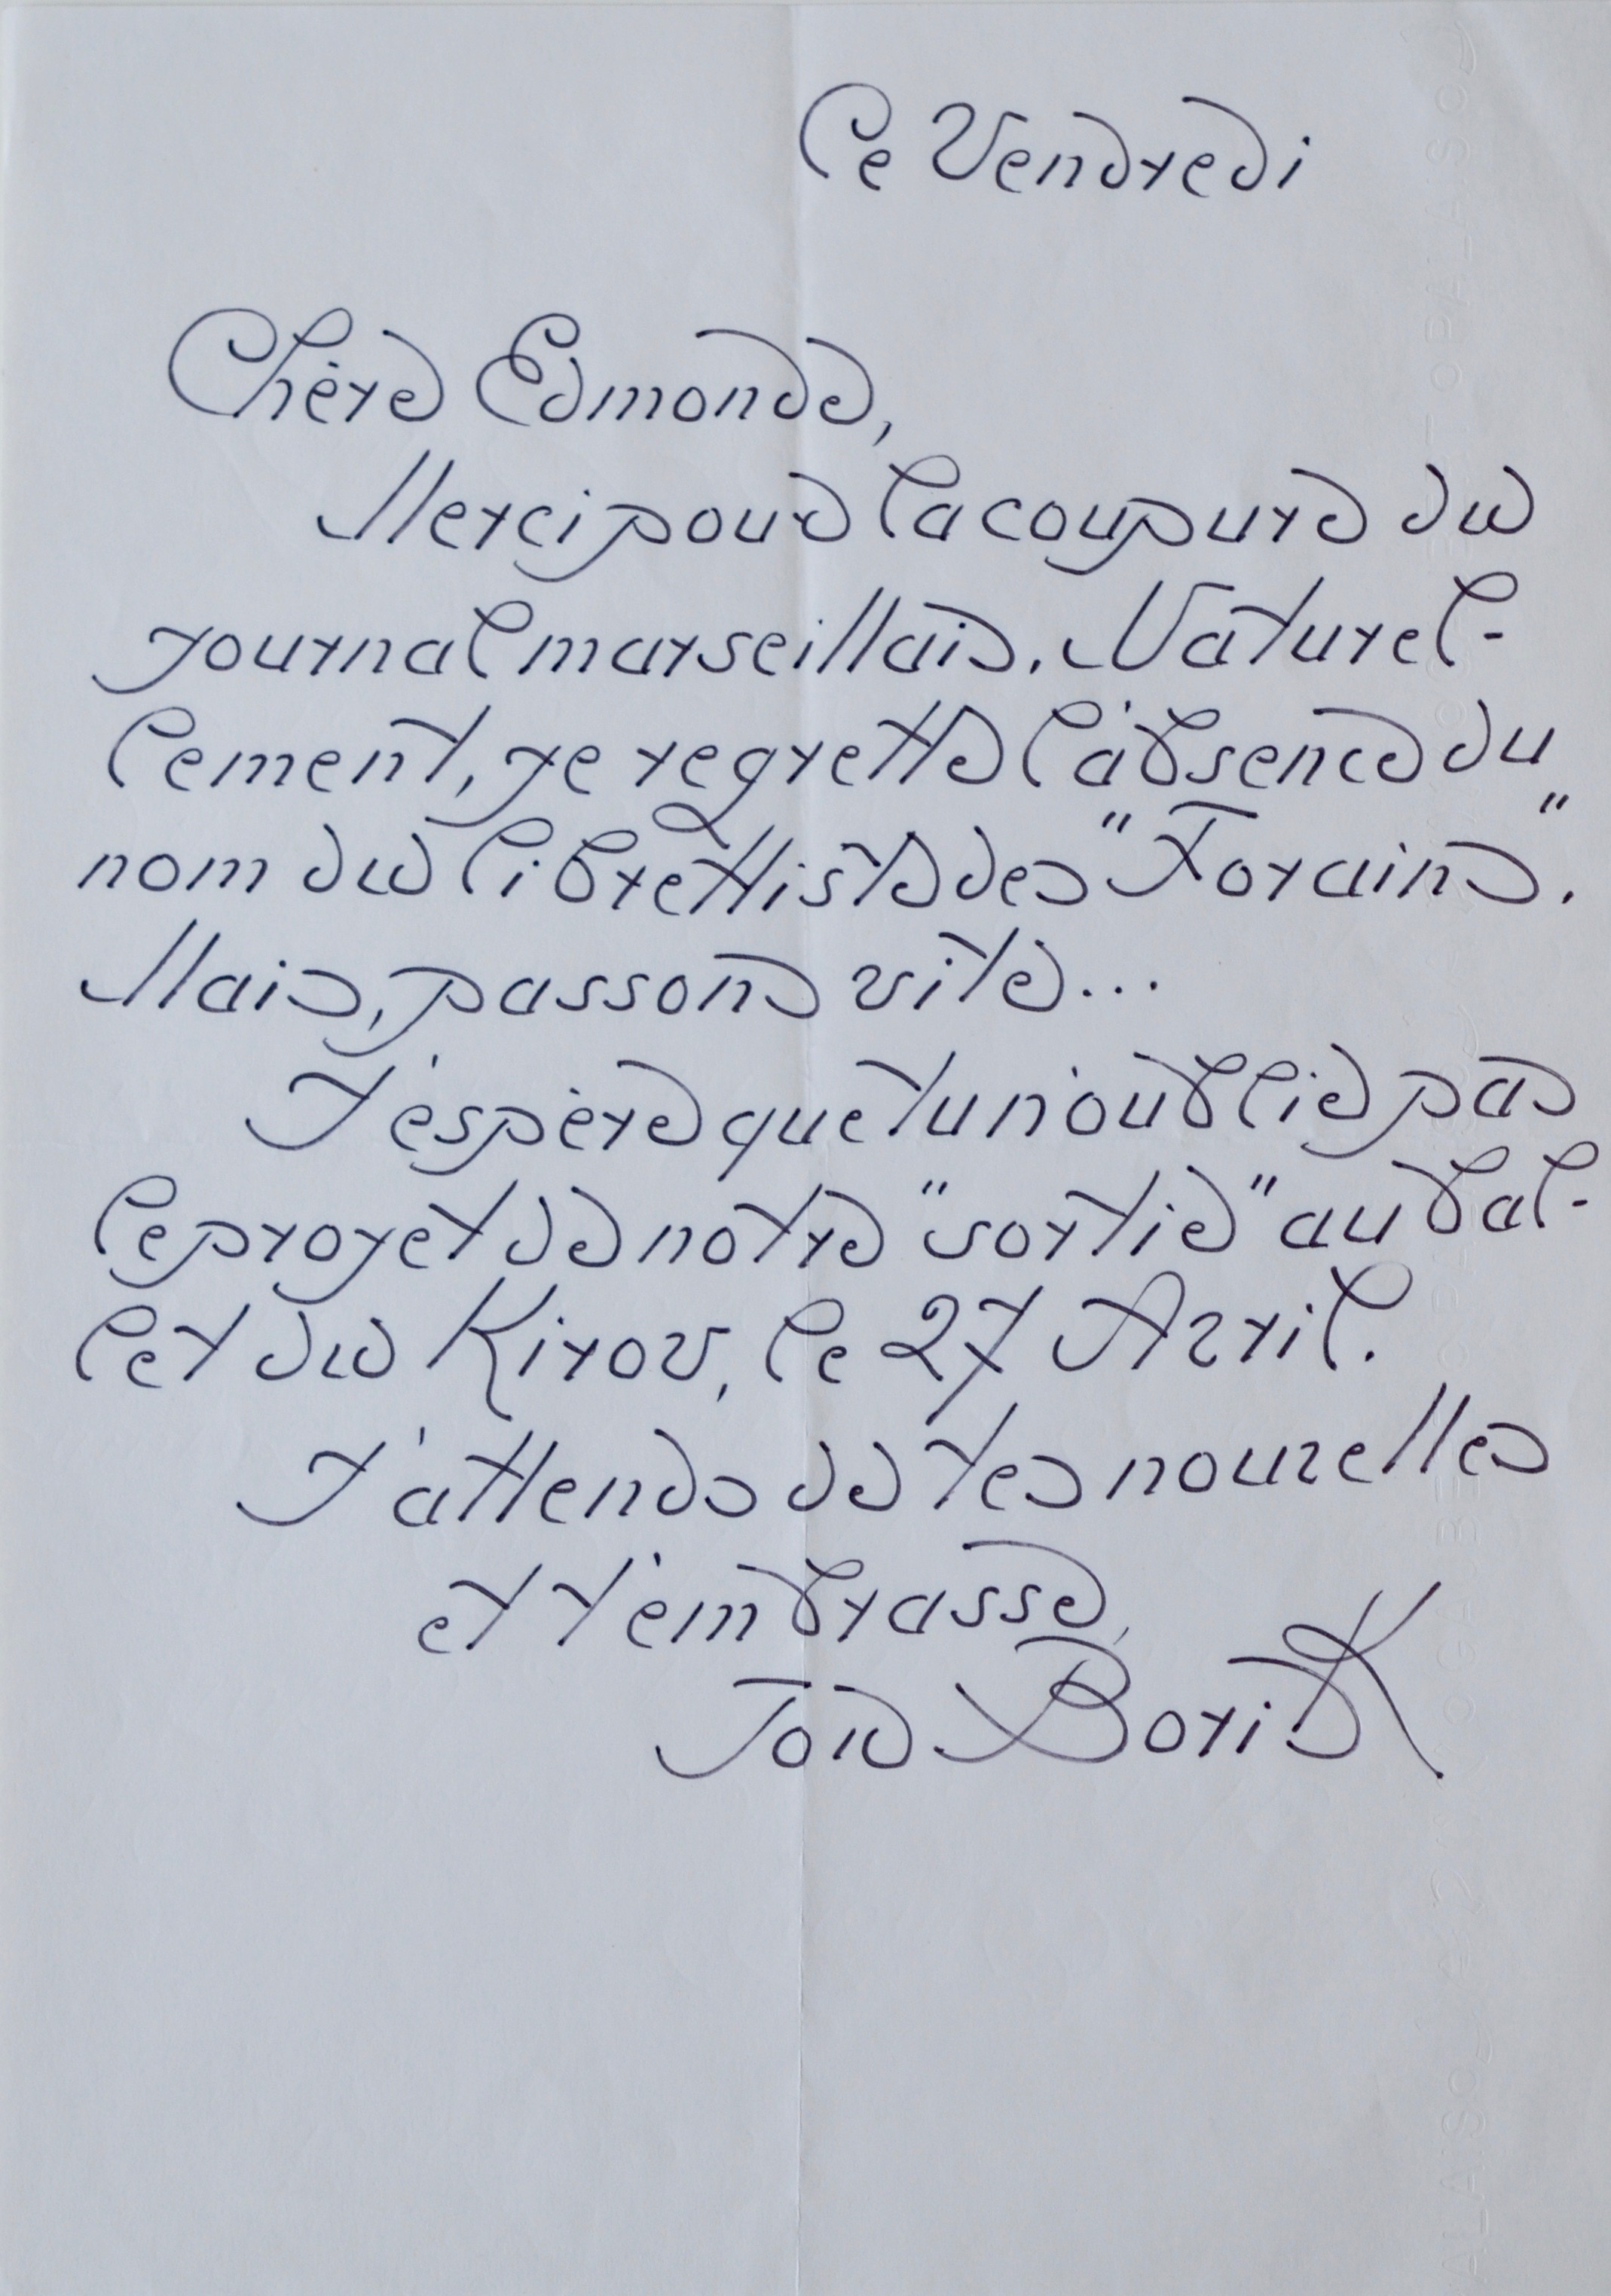 Ce Vendredi
Chère Edmonde,
Merci pour la coupure du
journal marseillais. Naturel-
lement, je regrette l'absence du
nom du librettiste des "Forains".
Mais, passons vite...
J'espère que tu n'oublie pas
le projet de notre "sortie" au bal-
let du Kirov, le 27 Avril.
J'attends de tes nouvelles
et t'embrasse,
Ton Boris K